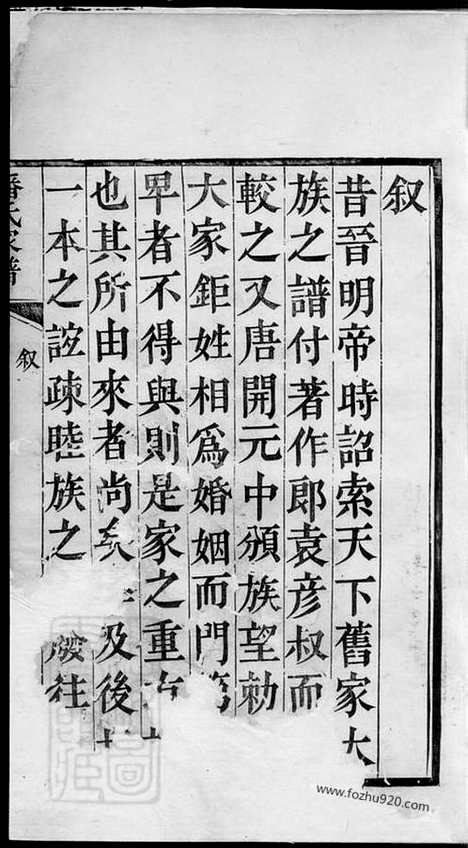 叙
昔晉明帝時詔索天下舊家大
族之譜付著作郎袁彦叔而
較之又唐開元中頒族望勅
大家鉅姓相爲婚姻而門第
卑者不得與則是家之重
也其所由來者尚矣 及後
一本之誼疎睦族之 廢往
潘氏家譜
叙
www.fozhu920.com